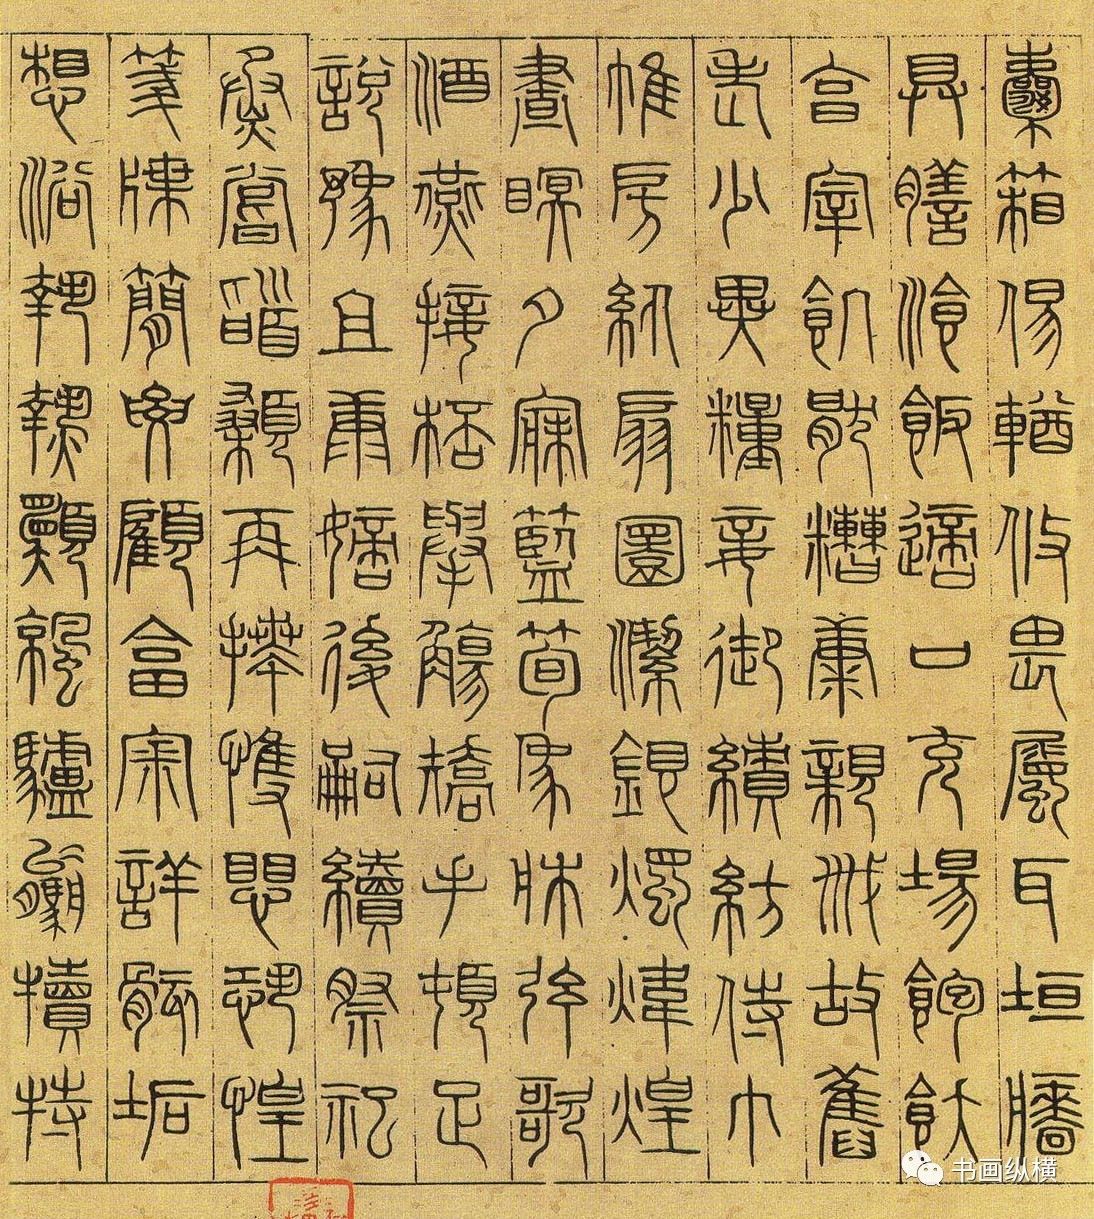 囊箱偒輶攸畏屬耳垣牆
具膳湌飯適口充腸飽飫
亯宰飢猒糟穅親戚故舊
老少異糧妾御績紡侍巾
帷房紈扇圜潔銀燭煒煌
晝瞑夕寐籃筍象牀弦歌
酒燕接桮舉觴撟手頓足
說豫且康嫡後嗣續祭祀
烝嘗䭫顙再拜愯懼恐惶
箋牒簡要顧畣宷詳骸垢
想浴執熱願涼驢驘犢特
书画纵横